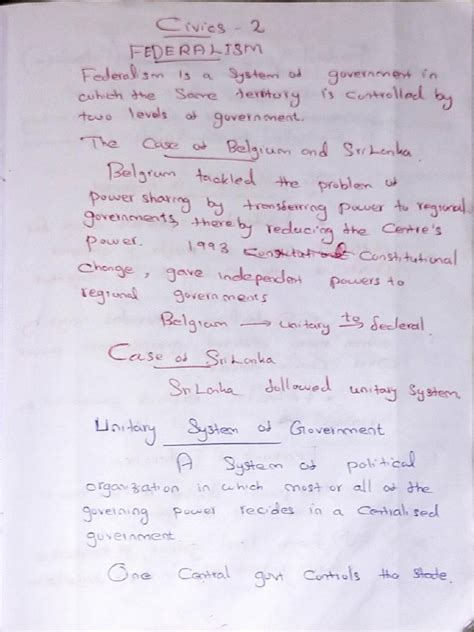 Civics - 2
FEDERALISM
Federalism is a System of government in
which the Same territory is Controlled by
two levels of government.
The Case of Belgium and Sri Lanka.
Belgium tackled the problem of
power sharing by transferring power to regional
governments, thereby reducing the Centre's
power. 1993 Constitutional
Change, gave independent powers to
regional governments
Belgium → unitary to federal.
Case of Sri Lanka
Sri Lanka followed unitary System
Unitary System of Government
A System of political
organization in which most or all of the
governing power recides in a Centralised
government
One Central govt Controls the State.